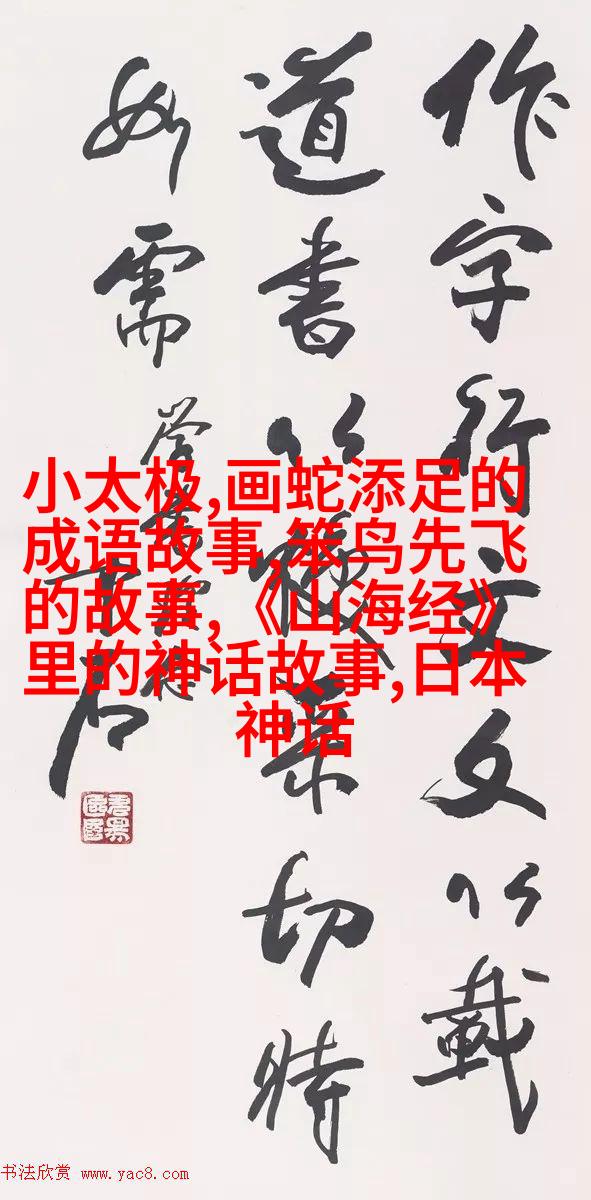 作字行文文以載
道書以煥采切時
如需
中石
小太极,画蛇添足的
成语故事,笨鸟先飞
的故事,《山海经》
里的神话故事,日本
神话
书法欣赏 www.yac8.com